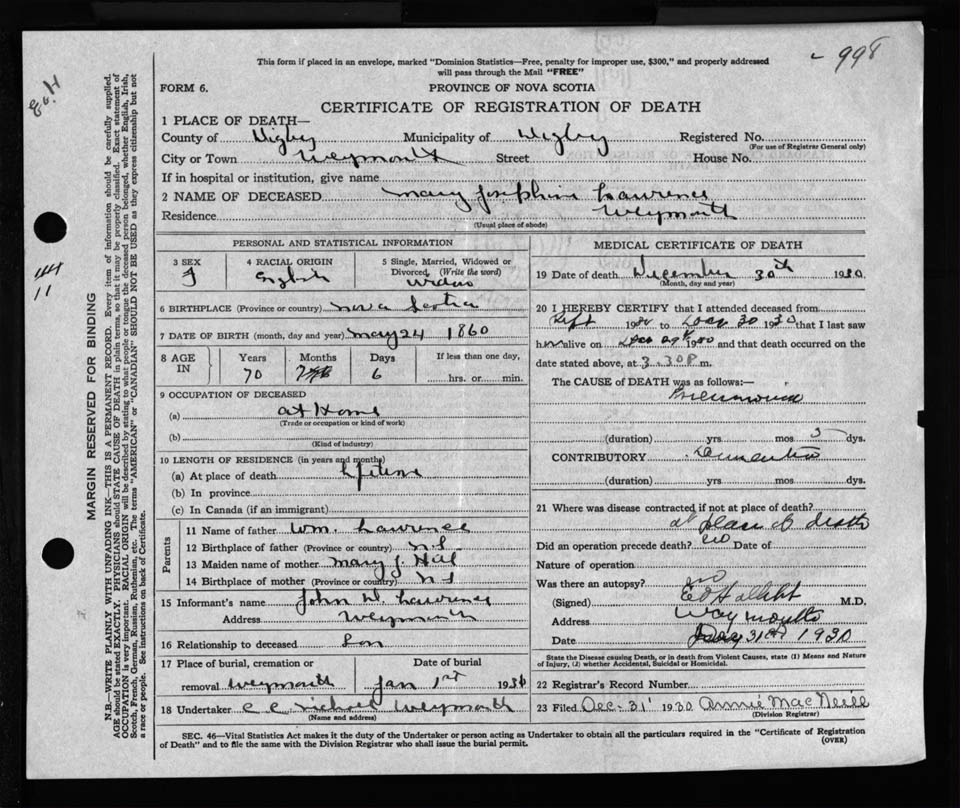 998
This form if placed in an envelope, marked "Dominion Statistics—Free, penalty for improper use, $300," and properly addressed
will pass through the Mail "FREE"
FORM 6. PROVINCE OF NOVA SCOTIA
CERTIFICATE OF REGISTRATION OF DEATH
1 PLACE OF DEATH—
County of Digby Municipality of Digby Registered No.
(For use of Registrar General only)
City or Town Weymouth Street House No.
If in hospital or institution, give name
2 NAME OF DECEASED Mary Josephine Lawrence
Residence Weymouth
(Usual place of abode)
PERSONAL AND STATISTICAL INFORMATION
3 SEX F
4 RACIAL ORIGIN English
5 Single, Married, Widowed or
Divorced, (Write the word)
Widow
6 BIRTHPLACE (Province or country) Nova Scotia
7 DATE OF BIRTH (month, day and year) May 24 1860
8 AGE IN
Years Months Days If less than one day,
70 6 hrs. or min.
9 OCCUPATION OF DECEASED
(a) at Home
(Trade or occupation or kind of work)
(b)
(Kind of industry)
10 LENGTH OF RESIDENCE (in years and months)
(a) At place of death Lifetime
(b) In province
(c) In Canada (if an immigrant)
Parents
11 Name of father Wm. Lawrence
12 Birthplace of father (Province or country) N.S
13 Maiden name of mother Mary J.
14 Birthplace of mother (Province or country) N S
15 Informant's name John W. Lawrence
Address Weymouth
16 Relationship to deceased Son
17 Place of burial, cremation or Date of burial
removal Weymouth Jan 1st 1931
18 Undertaker C C Nichols Weymouth
(Name and address)
MEDICAL CERTIFICATE OF DEATH
19 Date of death December 30th 1930
(Month, day and year)
20 I HEREBY CERTIFY that I attended deceased from
Sept 1930 to Dec 30 1930 that I last saw
her alive on Dec 29th 1930 and that death occurred on the
date stated above, at 3.30 P m.
The CAUSE OF DEATH was as follows:—
Pneumonia
(duration) yrs. mos. 3 dys.
CONTRIBUTORY Dementia
(duration) yrs. mos. dys.
21 Where was disease contracted if not at place of death?
at place of death
Did an operation precede death? no Date of
Nature of operation
Was there an autopsy? no
(Signed) M.D.
Address Weymouth
Date 31st 1930
State the Disease causing Death, or in death from Violent Causes, state (1) Means and Nature
of Injury, (2) whether Accidental, Suicidal or Homicidal.
22 Registrar's Record Number
23 Filed Dec. 31 1930 Annie MacNeill
(Division Registrar)
SEC. 46—Vital Statistics Act makes it the duty of the Undertaker or person acting as Undertaker to obtain all the particulars required in the "Certificate of Registration
of Death" and to file the same with the Division Registrar who shall issue the burial permit. (OVER)
MARGIN RESERVED FOR BINDING
N.B.—WRITE PLAINLY WITH UNFADING INK—THIS IS A PERMANENT RECORD. Every item of information should be carefully supplied.
AGE should be stated EXACTLY. PHYSICIANS should STATE CAUSE OF DEATH in plain terms, so that it may be properly classified. Exact statement of
OCCUPATION is very important. RACIAL ORIGIN will be described by stating to what people or tongue the deceased person belonged, whether English, Irish,
Scotch, French, German, Russian, Ruthenian, etc. The terms "AMERICAN" or "CANADIAN" SHOULD NOT BE USED as they express citizenship but not
a race or people. See instructions on back of Certificate.
11